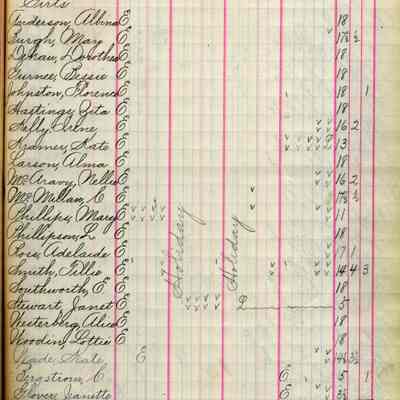 Girls
Anderson, Albina E 18
Burgh, May E 17½ ½
DeKau, Dorothea E 18
Gurnee, Bessie E 18
Johnston, Florence E 18 1
Hastings, Zita E 18
Kelly, Irene E 16 2
Kramer, Kate E 13
Larson, Alma E 18
McAravy, Nellie E 16 2
McMillan, C E 17½ ½
Phillips, Mary E 11
Phillipson, L E 18
Rose, Adelaide E 17 1
Smith, Tillie E 14 4 3
Southworth, E E 18
Stewart, Janet E 5
Westerberg, Alice E 18
Woodin, Lottie E 18
Wade, Kate E 3½
Bergstrom, C E 5 1
Glover, Janette E
Holiday
Holiday